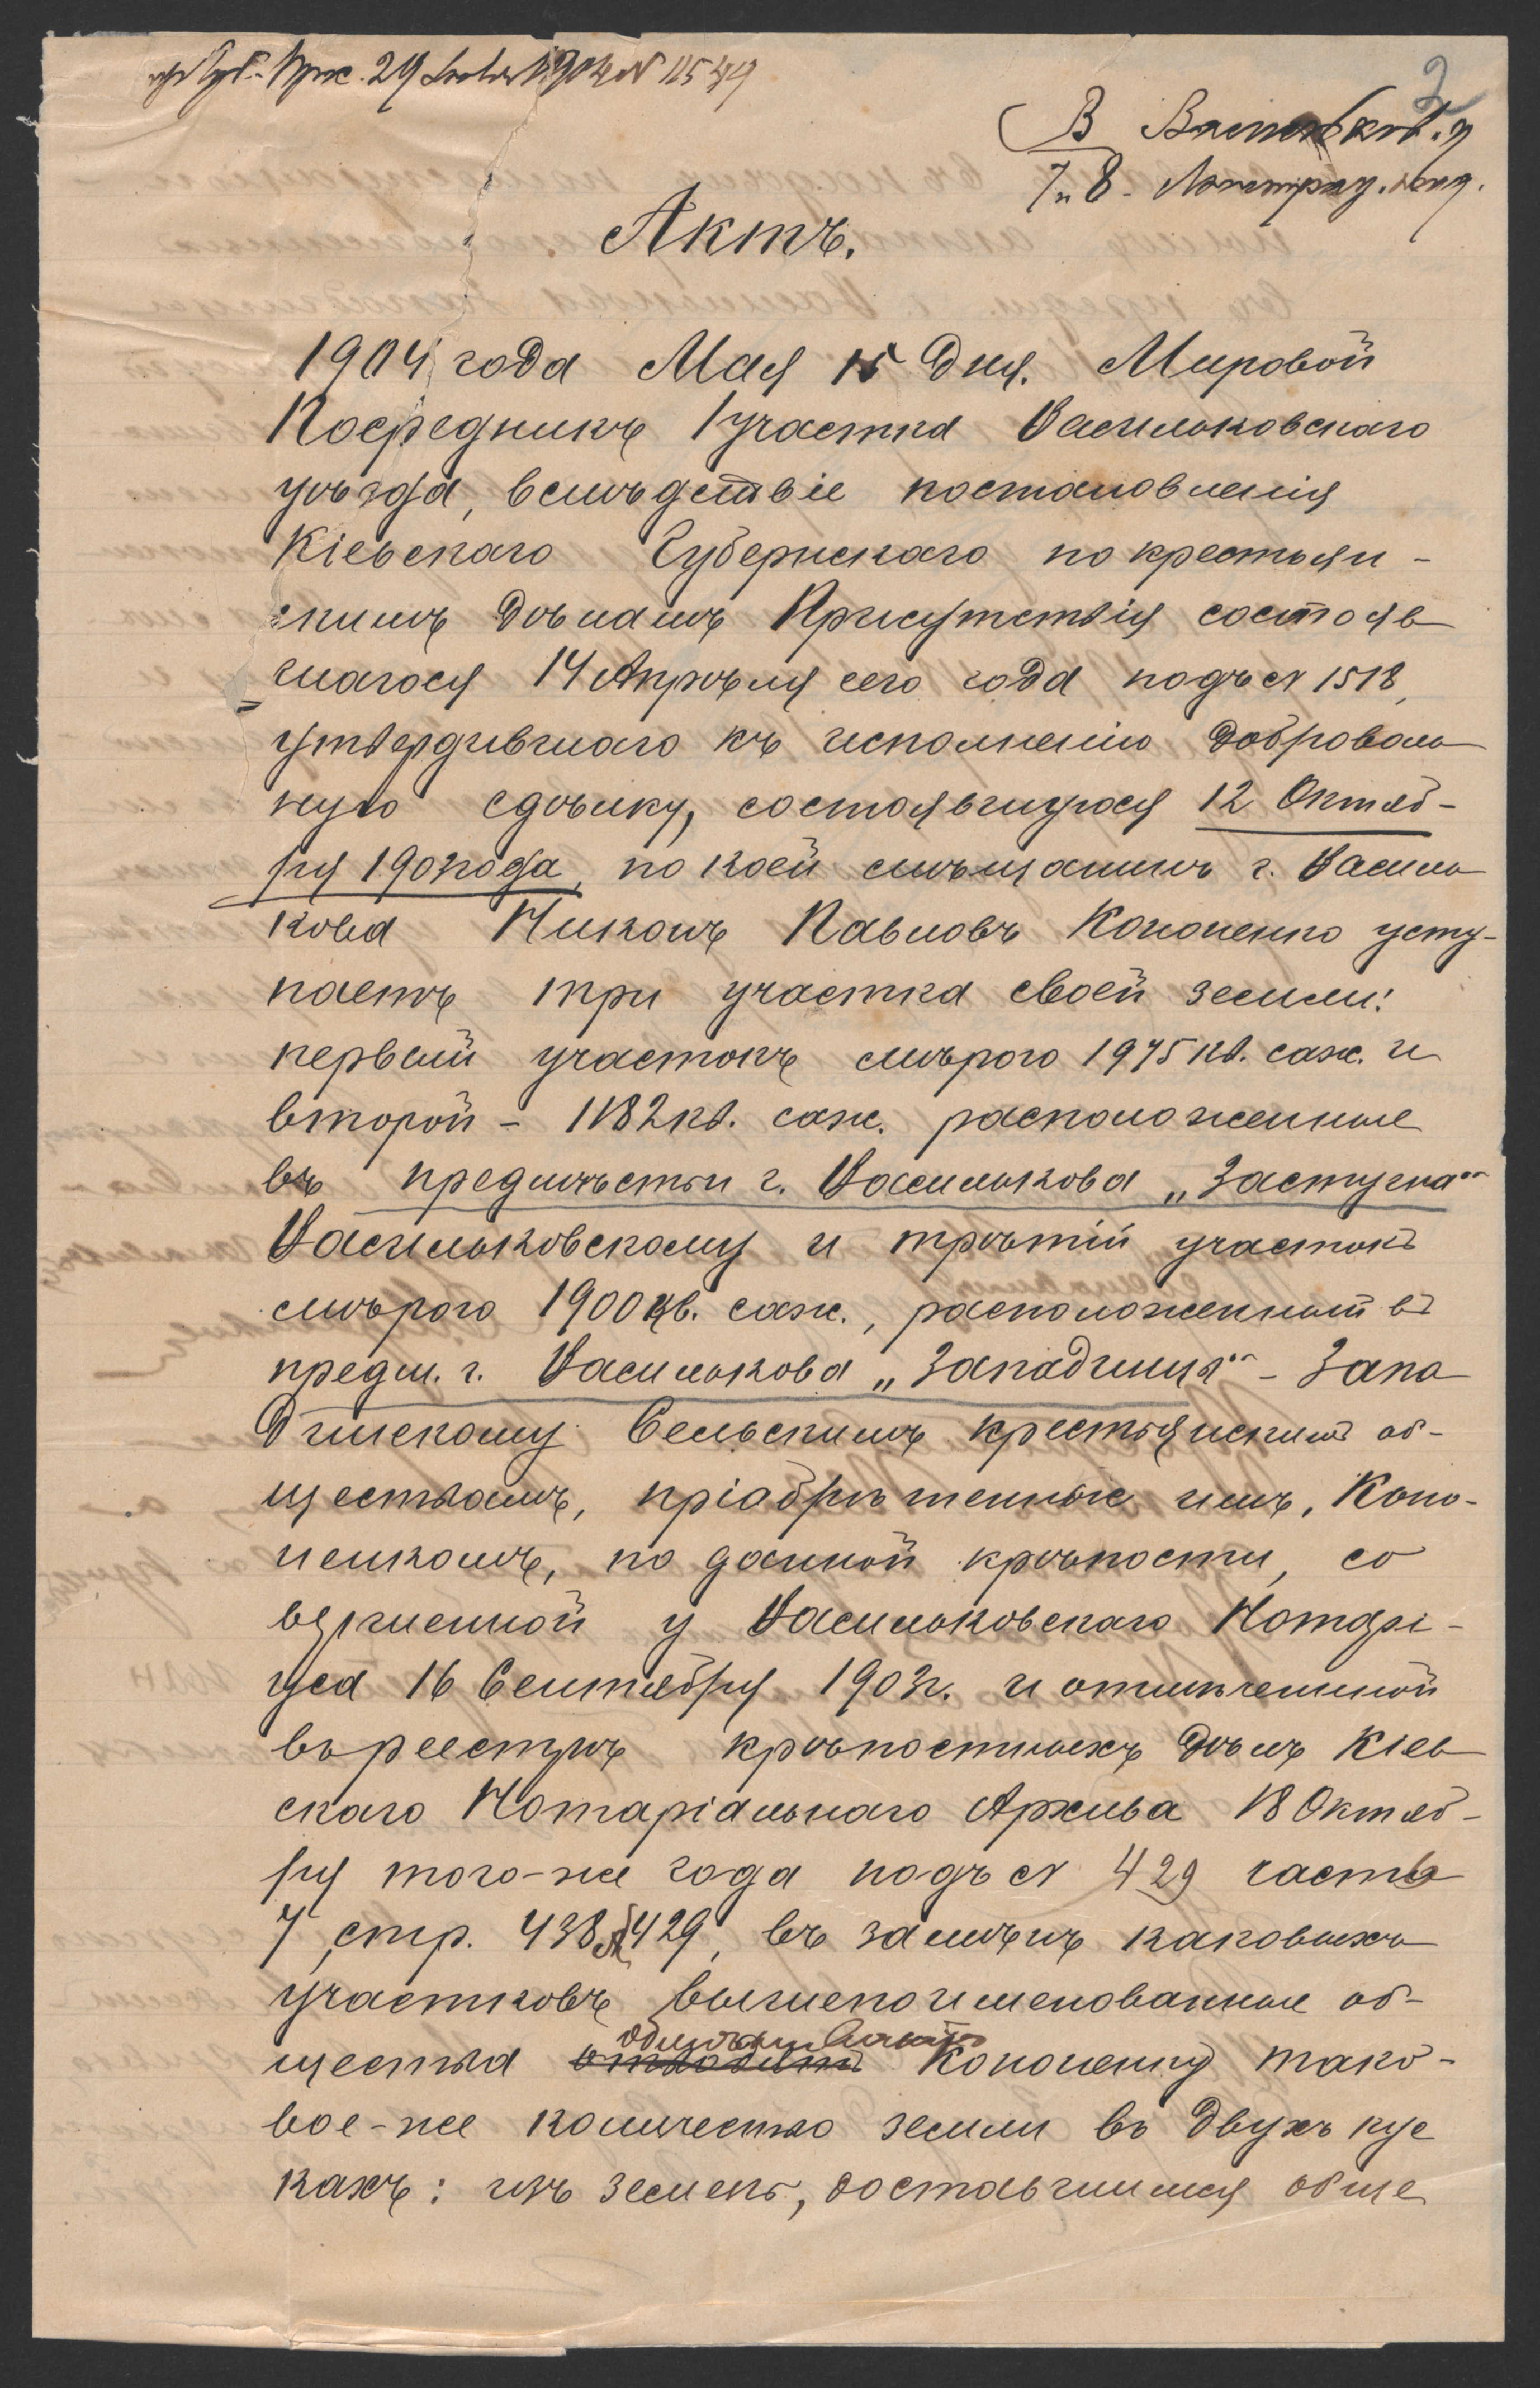 29 1904 № 11549
2
В Васильков. у
7 и 8
Актъ.
1904 года Мая 15 дня. Мировой
Посредникъ 1 участка Васильковскаго
уѣзда, вслѣдствіе постановленія
Кіевскаго Губернскаго по крестьян-
скимъ дѣламъ Присутствія состояв
шагося 14 Апрѣля сего года подъ № 1518,
утвердившаго къ исполненію доброволь
ную сдѣлку, состоявшуюся 12 Октяб-
ря 1903 года, по коей мѣщанинъ г. Василь
кова Никонъ Павловъ Кононенко усту-
паетъ три участка своей земли:
первый участокъ мѣрою 1975 кв. саж. и
второй - 1182 кв. саж. расположенные
въ предмѣстьи г. Василькова „Застугна"
Васильковскому и третій участокъ
мѣрою 1900 кв. саж., расположенный въ
предм. г. Василькова „Западинця" - Запа
динскому Сельскимъ крестьянскимъ об-
ществамъ, пріобрѣтенные имъ, Коно-
ненкомъ, по данной крѣпости, со
вершенной у Васильковскаго Нотарі-
уса 16 Сентября 1903 г. и отмѣченной
въ реестрѣ крѣпостныхъ дѣлъ Кіев
скаго Нотаріальнаго Архива 18 Октяб-
ря того-же года подъ № 429 часть
7, стр. 438 № 429, въ замѣнъ каковыхъ
участковъ вышепоименованные об-
щества отводятъ Кононенку тако-
обмѣниваютъ
вое-же количество земли въ двухъ кус
кахъ: изъ земель, доставшимся обще